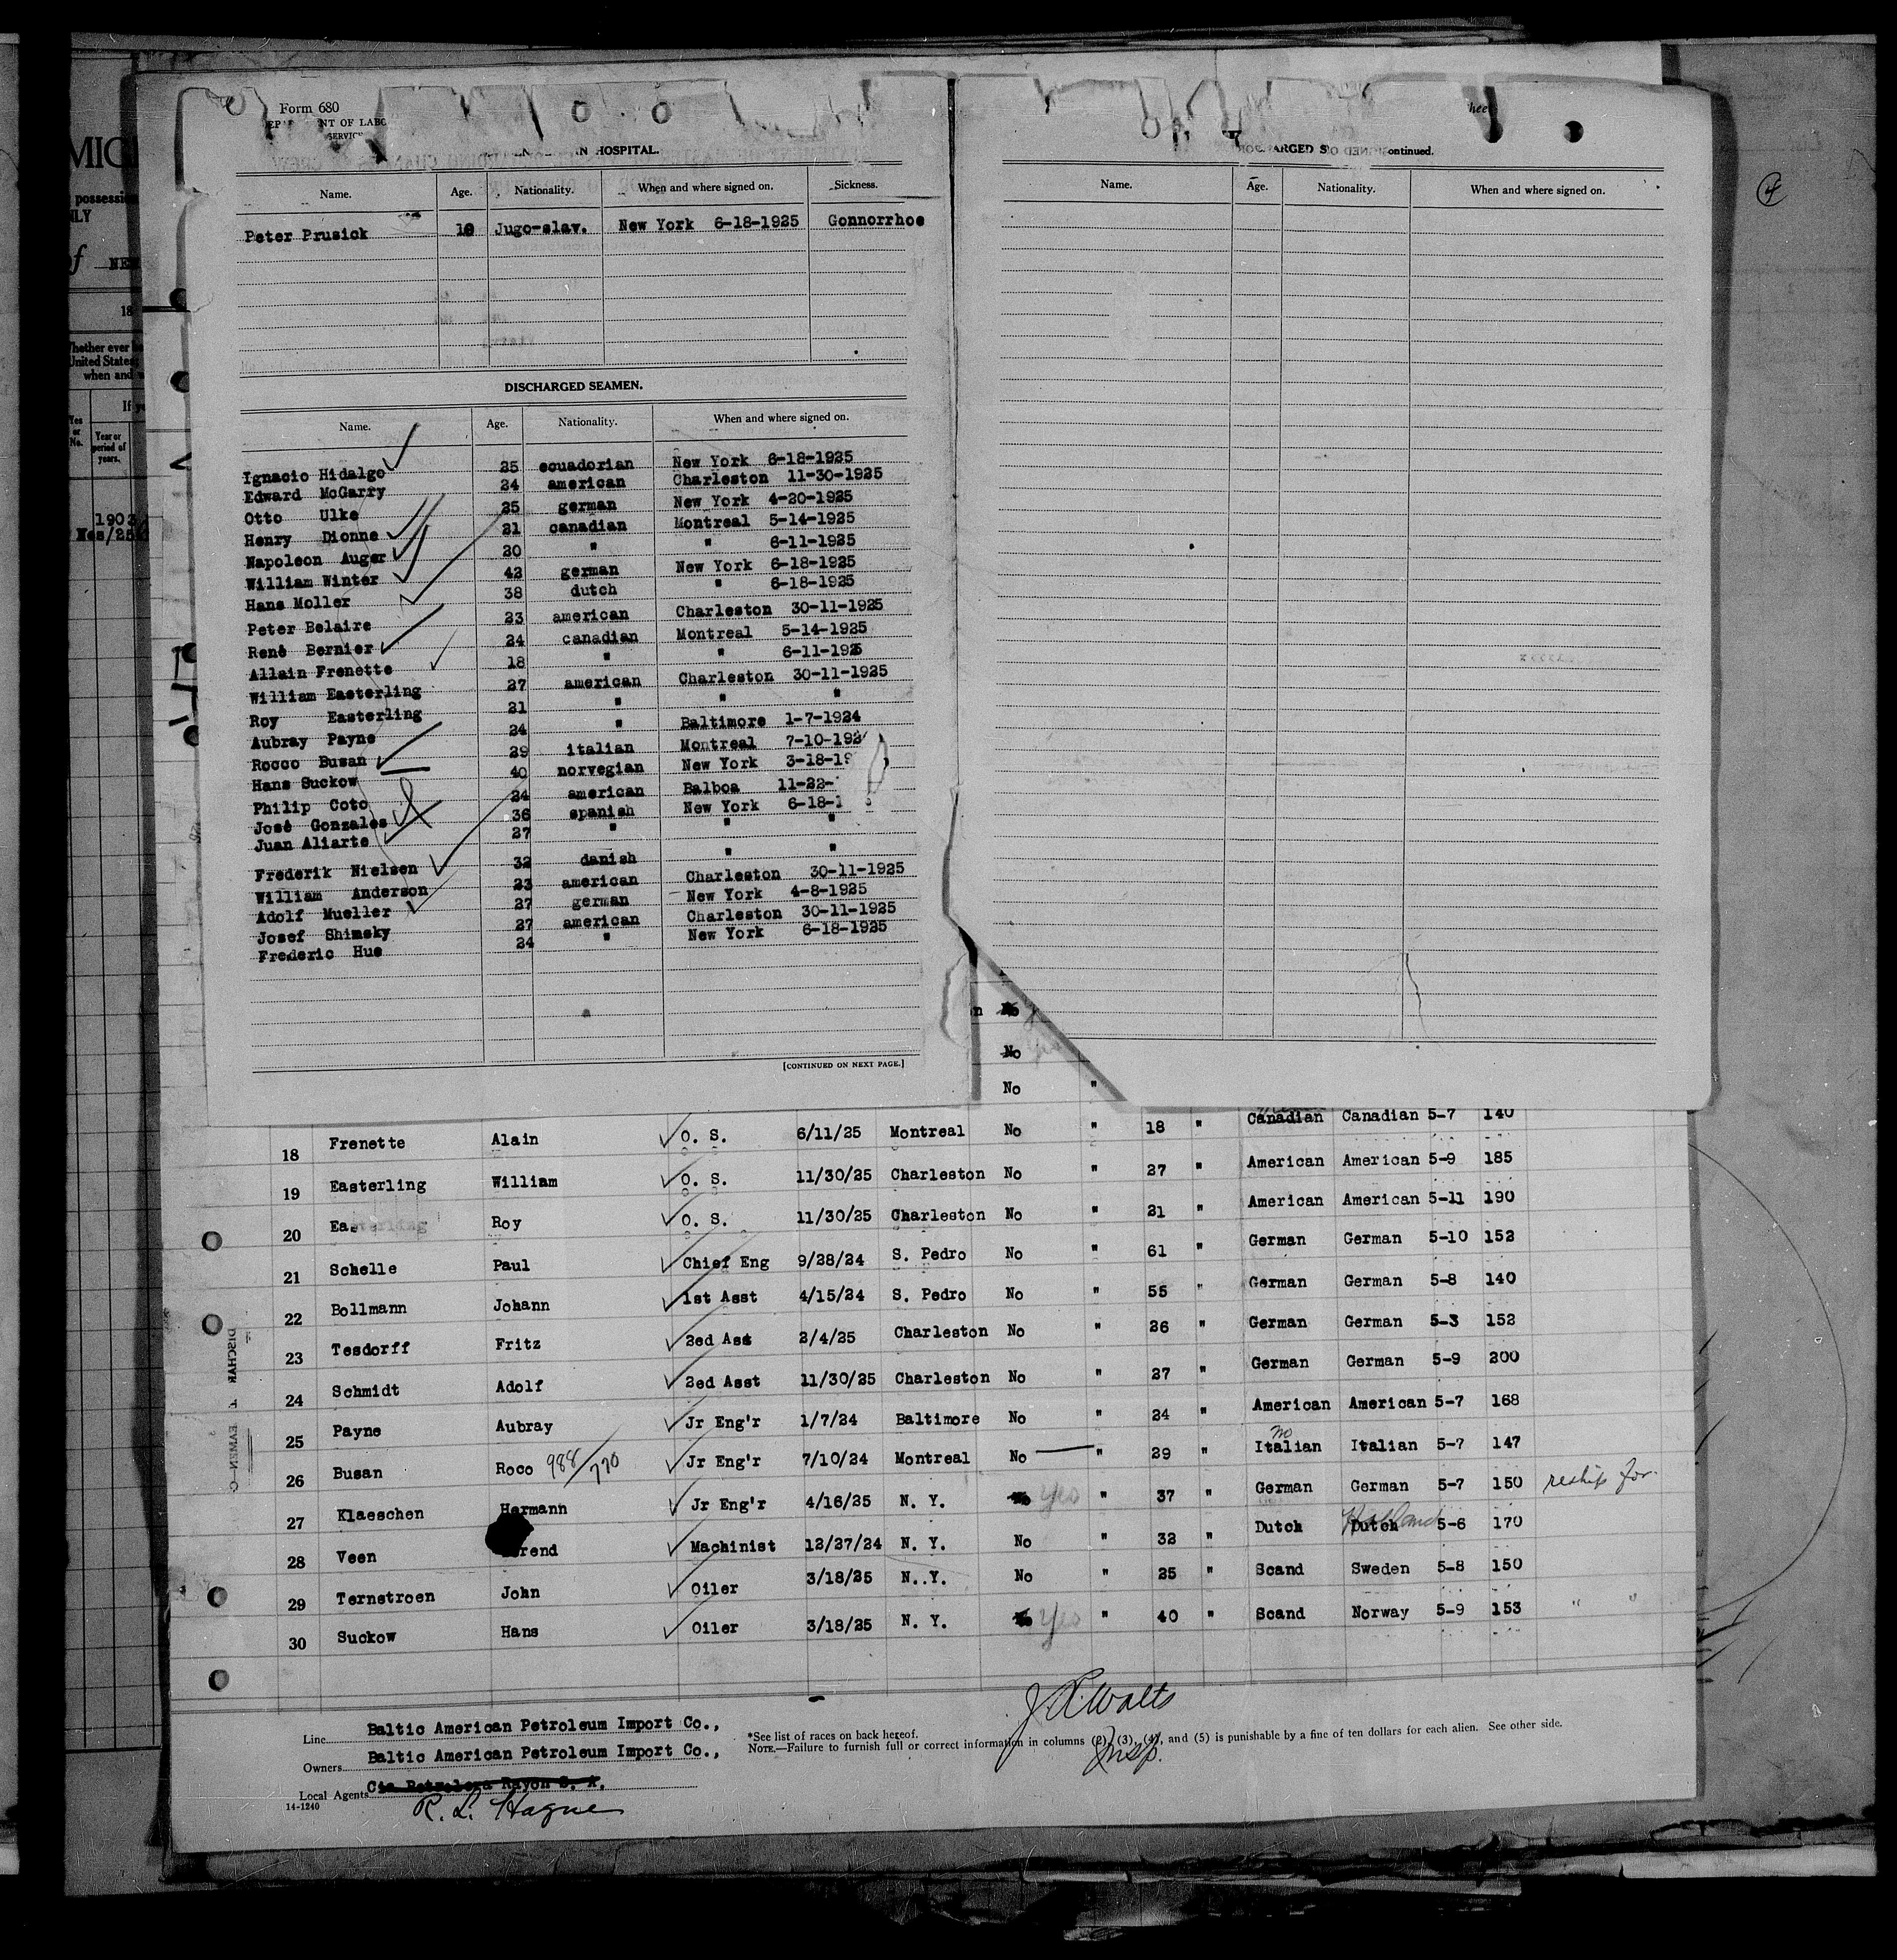 Form 680
NT OF LABO
SERVICE
HOSPITAL.
Name. Age. Nationality. When and where signed on. Sickness.
Peter Prusick 19 Jugo-slav. New York 6-18-1925 Gonnorrhoe
DISCHARGED SEAMEN.
Name. Age. Nationality. When and where signed on.
Ignacio Hidalgo 25 ecuadorian New York 6-18-1925
Edward McGarry 24 american Charleston 11-30-1925
Otto Ulke 25 german New York 4-20-1925
Henry Dionne 21 canadian Montreal 5-14-1925
Napoleon Auger 20 " " 6-11-1925
William Winter 43 german New York 6-18-1925
Hans Moller 38 dutch " 6-18-1925
Peter Belaire 23 american Charleston 30-11-1925
René Bernier 24 canadian Montreal 5-14-1925
Allain Frenette 18 " " 6-11-1925
William Easterling 27 american Charleston 30-11-1925
Roy Easterling 21 " " "
Aubray Payne 24 " Baltimore 1-7-1924
Rocco Busan 29 italian Montreal 7-10-192
Hans Suckow 40 norvegian New York 3-18-19
Philip Coto 24 american Balboa 11-22-
José Gonzales 36 spanish New York 6-18-1
Juan Aliarte 27 " " "
Frederik Nielsen 32 danish " "
William Anderson 23 american Charleston 30-11-1925
Adolf Mueller 27 german New York 4-8-1925
Josef Shimsky 27 american Charleston 30-11-1925
Frederic Hue 24 " New York 6-18-1925
[CONTINUED ON NEXT PAGE.]
ARGED S ontinued.
Name. Age. Nationality. When and where signed on.
MIC
possession
NLY
of NEW
18
Whether ever be
United States
when and w
If ye
Yes or No. Year or period of years.
1903
Yes/25
No
No
No "
Canadian Canadian 5-7 140
18 Frenette Alain O. S. 6/11/25 Montreal No " 18 "
19 Easterling William O. S. 11/30/25 Charleston No " 27 " American American 5-9 185
20 Easterling Roy O. S. 11/30/25 Charleston No " 21 " American American 5-11 190
21 Schelle Paul Chief Eng 9/28/24 S. Pedro No " 61 " German German 5-10 152
22 Bollmann Johann 1st Asst 4/15/24 S. Pedro No " 55 " German German 5-8 140
23 Tesdorff Fritz 2ed Ass 2/4/25 Charleston No " 26 " German German 5-3 152
24 Schmidt Adolf 2ed Asst 11/30/25 Charleston No " 27 " German German 5-9 200
25 Payne Aubray Jr Eng'r 1/7/24 Baltimore No " 24 " American American 5-7 168
26 Busan Roco 988/770 Jr Eng'r 7/10/24 Montreal No " 29 " Italian Italian 5-7 147
27 Klaeschen Hermann Jr Eng'r 4/16/25 N. Y. Yes " 37 " German German 5-7 150 reship for.
28 Veen rend Machinist 12/27/24 N. Y. No " 32 " Dutch Dutch Holland 5-6 170
29 Ternstroen John Oiler 3/18/25 N. Y. No " 25 " Scand Sweden 5-8 150
30 Suckow Hans Oiler 3/18/25 N. Y. Yes " 40 " Scand Norway 5-9 153 " "
Line Baltic American Petroleum Import Co.,
Owners Baltic American Petroleum Import Co.,
Local Agents Cia Petrolera Rayon S. A.
14-1240
R. L. Hague
*See list of races on back hereof.
NOTE.—Failure to furnish full or correct information in columns (2), (3), (4), and (5) is punishable by a fine of ten dollars for each alien. See other side.
Insp.